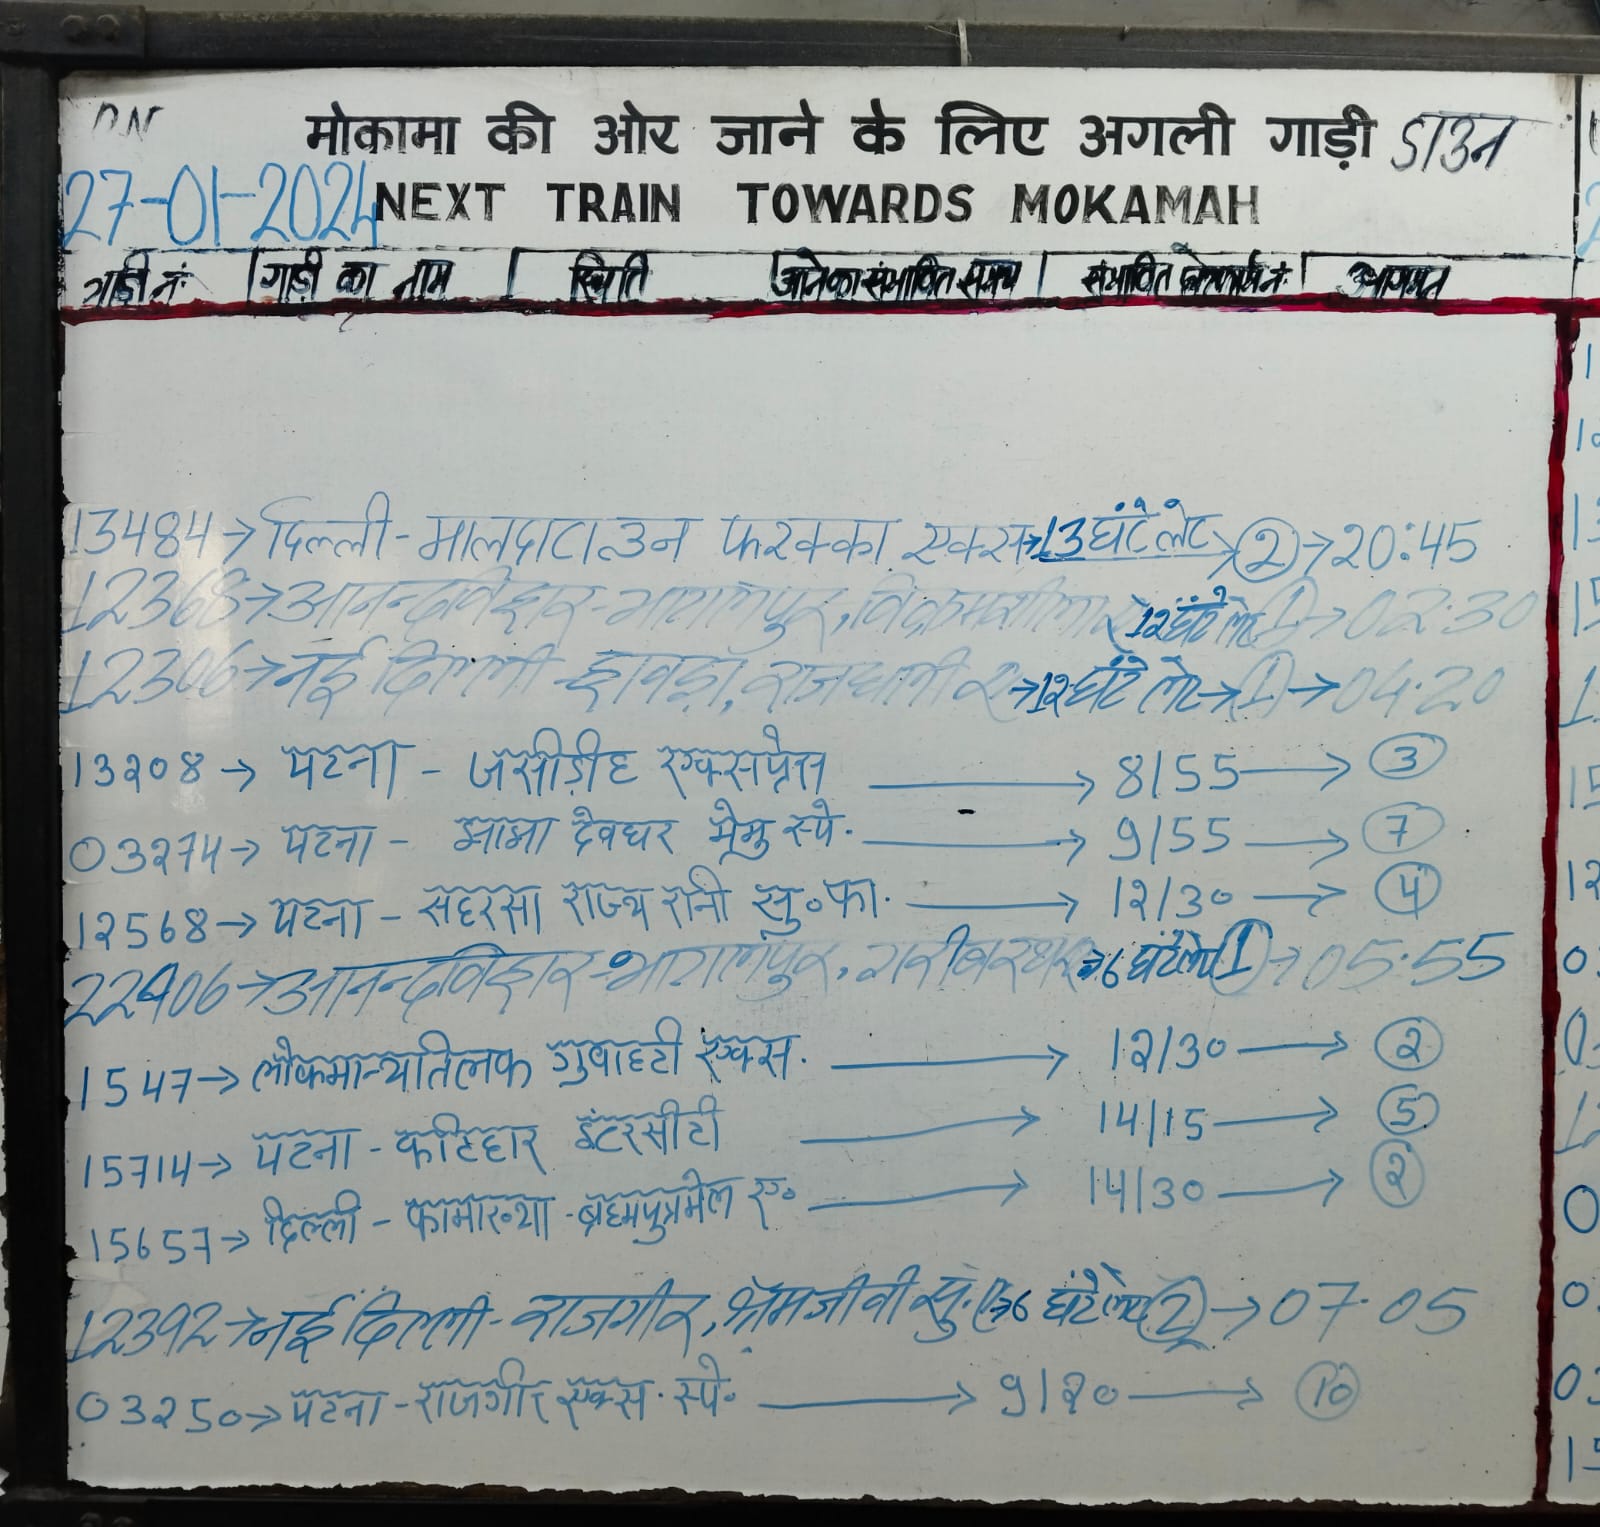 DN मोकामा की ओर जाने के लिए अगली गाड़ी डाउन
27-01-2024 NEXT TRAIN TOWARDS MOKAMAH
गाड़ी नं. गाड़ी का नाम स्थिति आने का संभावित समय संभावित प्लेटफार्म नं. आगमन
13484→दिल्ली-मालदाटाउन फरक्का एक्स→13घंटे लेट→2→20:45
12368→आनन्दविहार-भागलपुर, विक्रमशीला ए 12घंटे लेट 1→02:30
12306→नई दिल्ली-हावड़ा, राजधानी ए→12घंटे लेट→1→04.20
13208→ पटना - जसीडीह एक्सप्रेस → 8/55→ 3
03274→ पटना - झाझा देवघर मेमु स्पे. → 9/55→ 7
12568→ पटना - सहरसा राज्य रानी सु०फा. → 12/30→ 4
22406→आनन्दविहार-भागलपुर, गरीबरथ ए→6 घंटे लेट 1→05.55
1547→ लोकमान्यतिलक गुवाहटी एक्स. → 12/30→ 2
15714→ पटना - कटिहार इंटरसीटी → 14/15→ 5
15657→ दिल्ली - कामाख्या - ब्रहमपुत्रमेल ए० → 14/30→ 2
12392→नई दिल्ली-राजगीर, श्रमजीवी सु.→6 घंटे लेट 2→07.05
03250→ पटना - राजगीर एक्स. स्पे० → 9/20→ 10